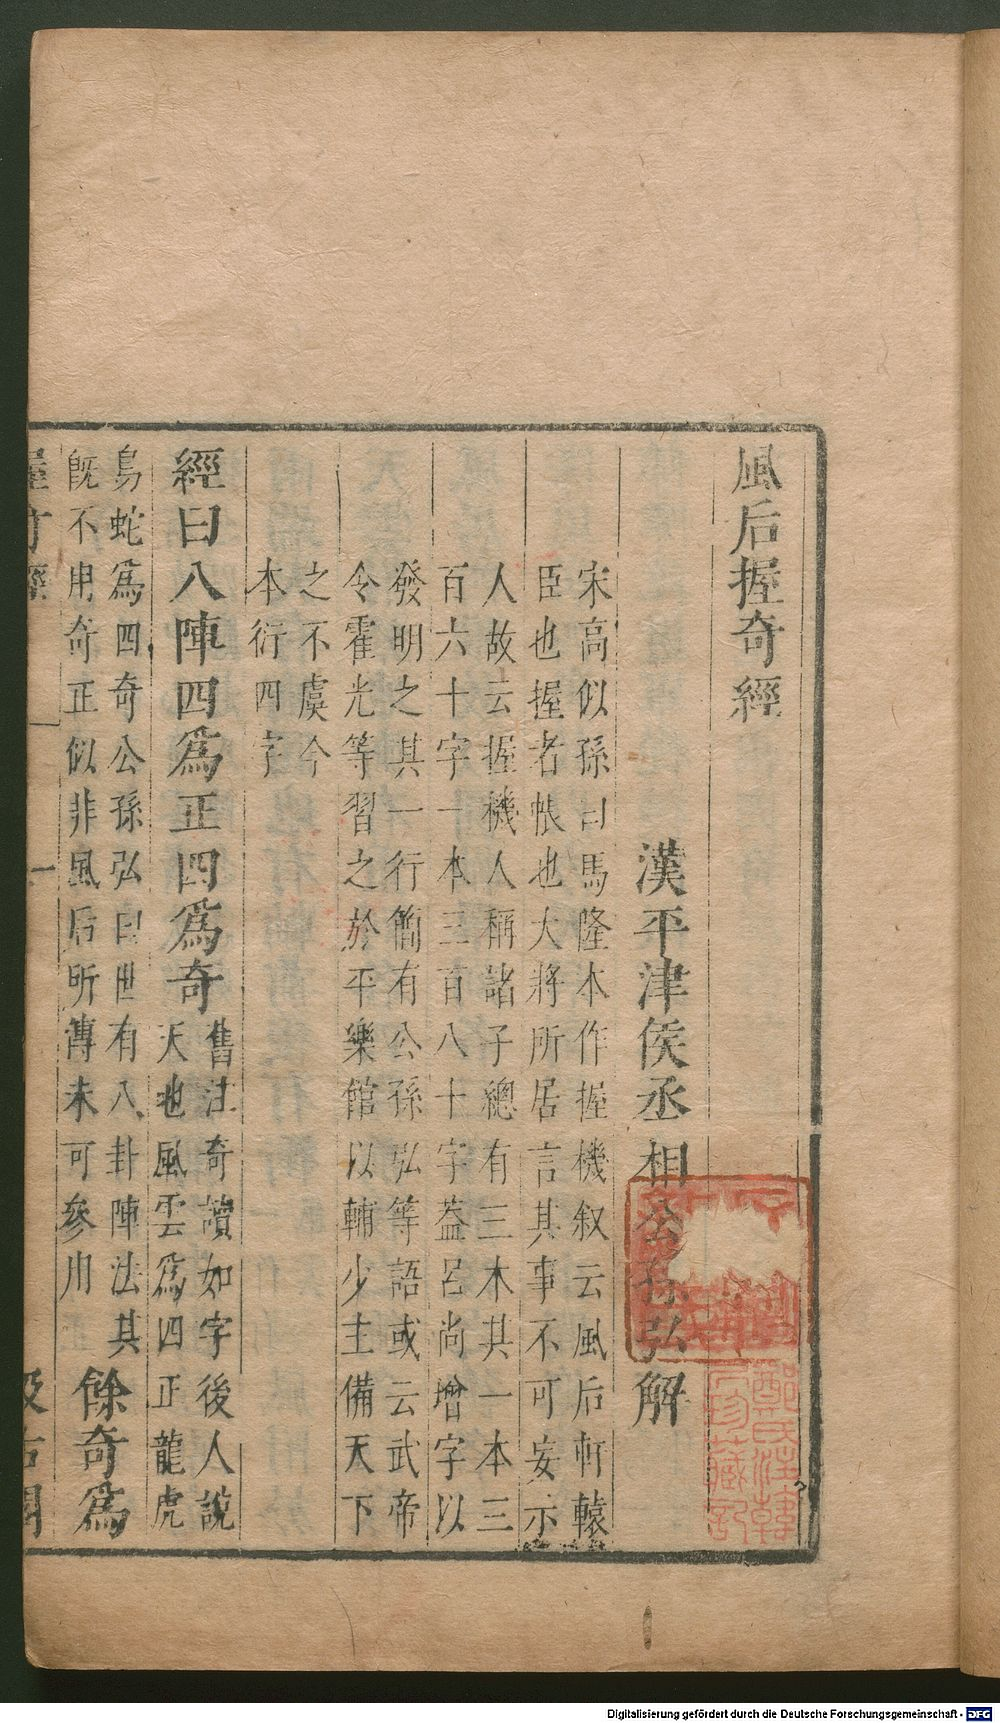 風后握奇經
漢平津侯丞相公孫弘解
宋高似孫曰馬隆本作握機叙云風后軒轅
臣也握者帳也大將所居言其事不可妄示
人故云握機人稱諸子總有三本其一本三
百六十字一本三百八十字葢呂尚增字以
發明之其一行簡有公孫弘等語或云武帝
令霍光等習之於平樂館以輔少主備天下
之不虞今
本衍四字
經曰八陣四爲正四爲奇
舊注奇讀如字後人說
天地風雲爲四正龍虎
鳥蛇爲四奇公孫弘曰世有八卦陣法其
既不用奇正似非風后所傳未可參用
餘奇爲
握奇經
一
汲古閣
鄭氏注韓
居珍藏記
Digitalisierung gefördert durch die Deutsche Forschungsgemeinschaft - DFG